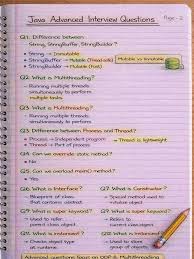 Java Advanced Interview Questions
Page - 2
Q1. Difference between:
String, StringBuffer, StringBuilder?
String → Immutable
StringBuffer → Mutable (Thread-safe)
StringBuilder → Mutable (Fast)
Mutable vs Immutable
Q2. What is Multithreading?
Running multiple threads
simultaneously to perform
multiple tasks.
Q2. What is Multithreading?
Running multiple threads simultaneously to perform
multiple tasks.
Q3. Difference between Process and Thread?
Process → Independent program
Thread → Lightweight process
Thread is lightweight
Q4. Can we override static method?
→ No
Q5. Can we overload main method?
→ Yes
Q6. What is Interface?
→ Blueprint of class
that contains abstract
methods
Q7. What is Constructor?
→ Special method used to
initialize objects.
Q9. What is super keyword?
→ Used to refer
parent class object.
Q9. What is super keyword?
→ Refers to parent
class object.
Q11. What is instanceof?
→ Checks object type
at runtime.
Q12. What is
→ Used to store
group of objects.
Advanced questions focus on OOP & Multithreading